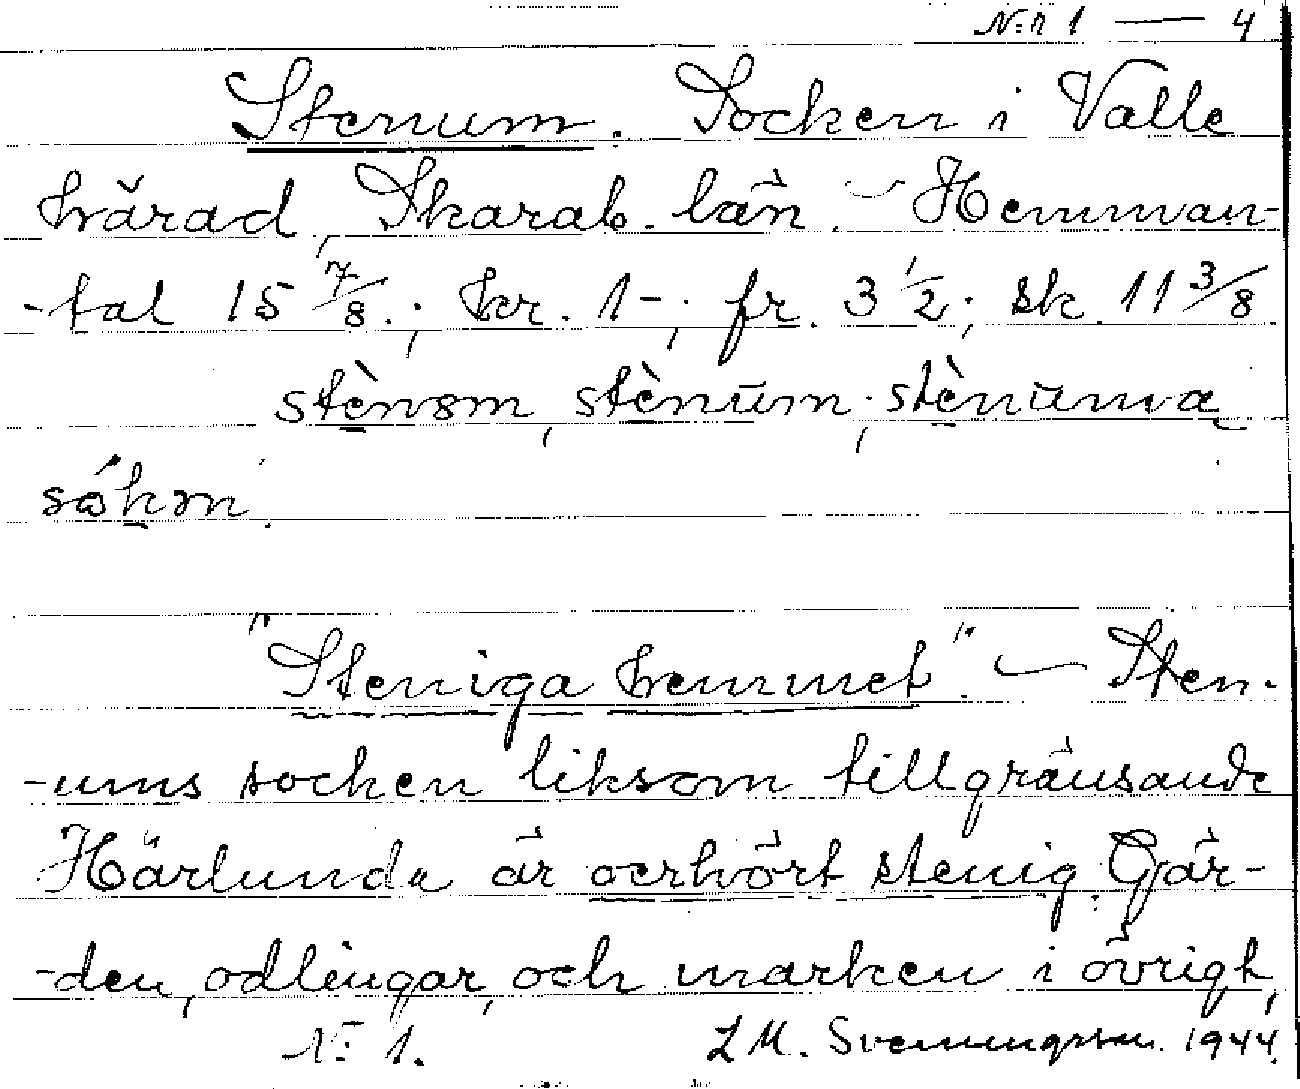 N:r 1 — 4
Stenum. Socken i Valle
härad, Skarab. län. – Hemman-
-tal 15 7/8.; kr. 1-; fr. 3 1/2; sk. 11 3/8.
stènom, stènum; stènuma
sókm.
"Steniga hemmet". – Sten-
-ums socken liksom tillgränsande
Härlunda är oerhört stenig. Går-
-den, odlingar, och marken i övrigt,
N:r 1. L M. Svenungsson. 1944.